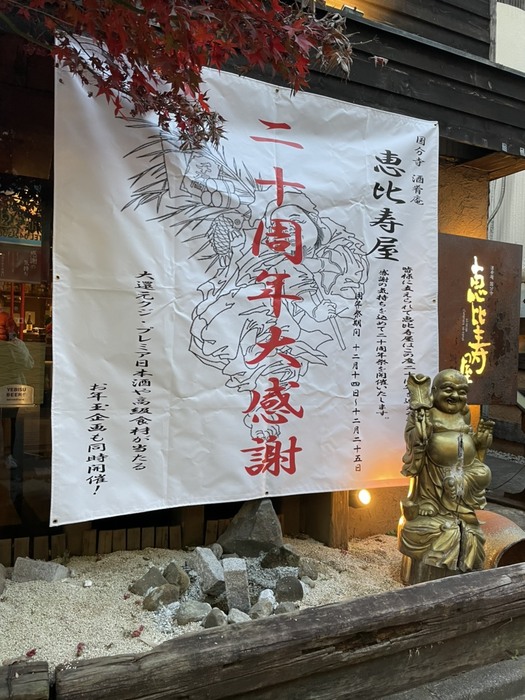 国分寺 酒肴庵
恵比寿屋
皆様に支えられて恵比寿屋はこの度二十
感謝の気持ちを込めて二十周年祭を開催いたします。
周年祭期間 十二月十四日～十二月二十五日
二十周年大感謝
大還元クジ・プレミア日本酒や高級食材が当たる
お年玉企画も同時開催！
恵比寿屋
YEBISU
BEER